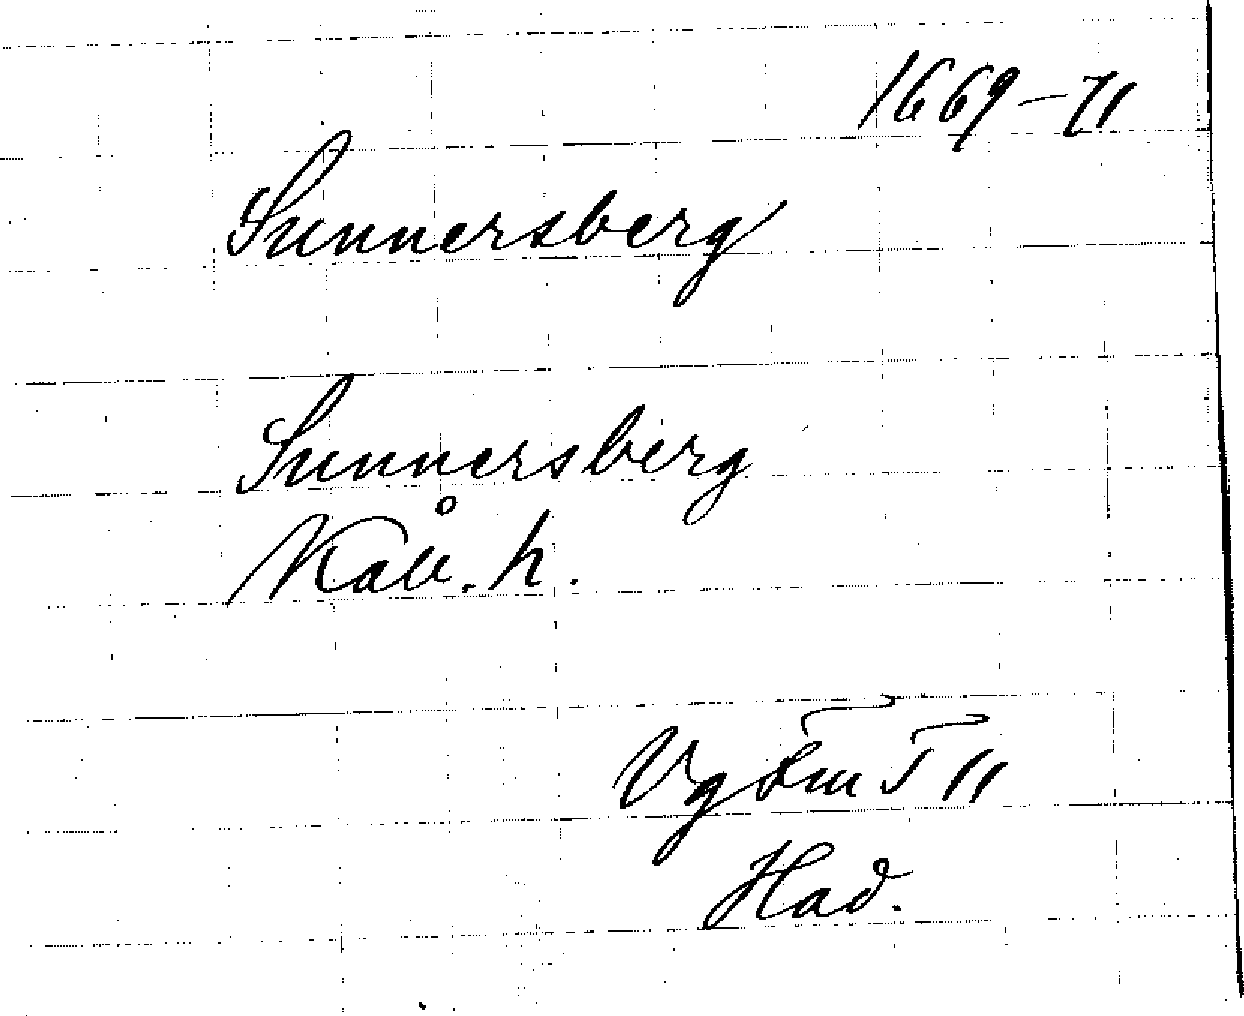 1669-71
Sunnersberg
Sunnersberg
Kåll. h.
Vg Fm T 11
Had.